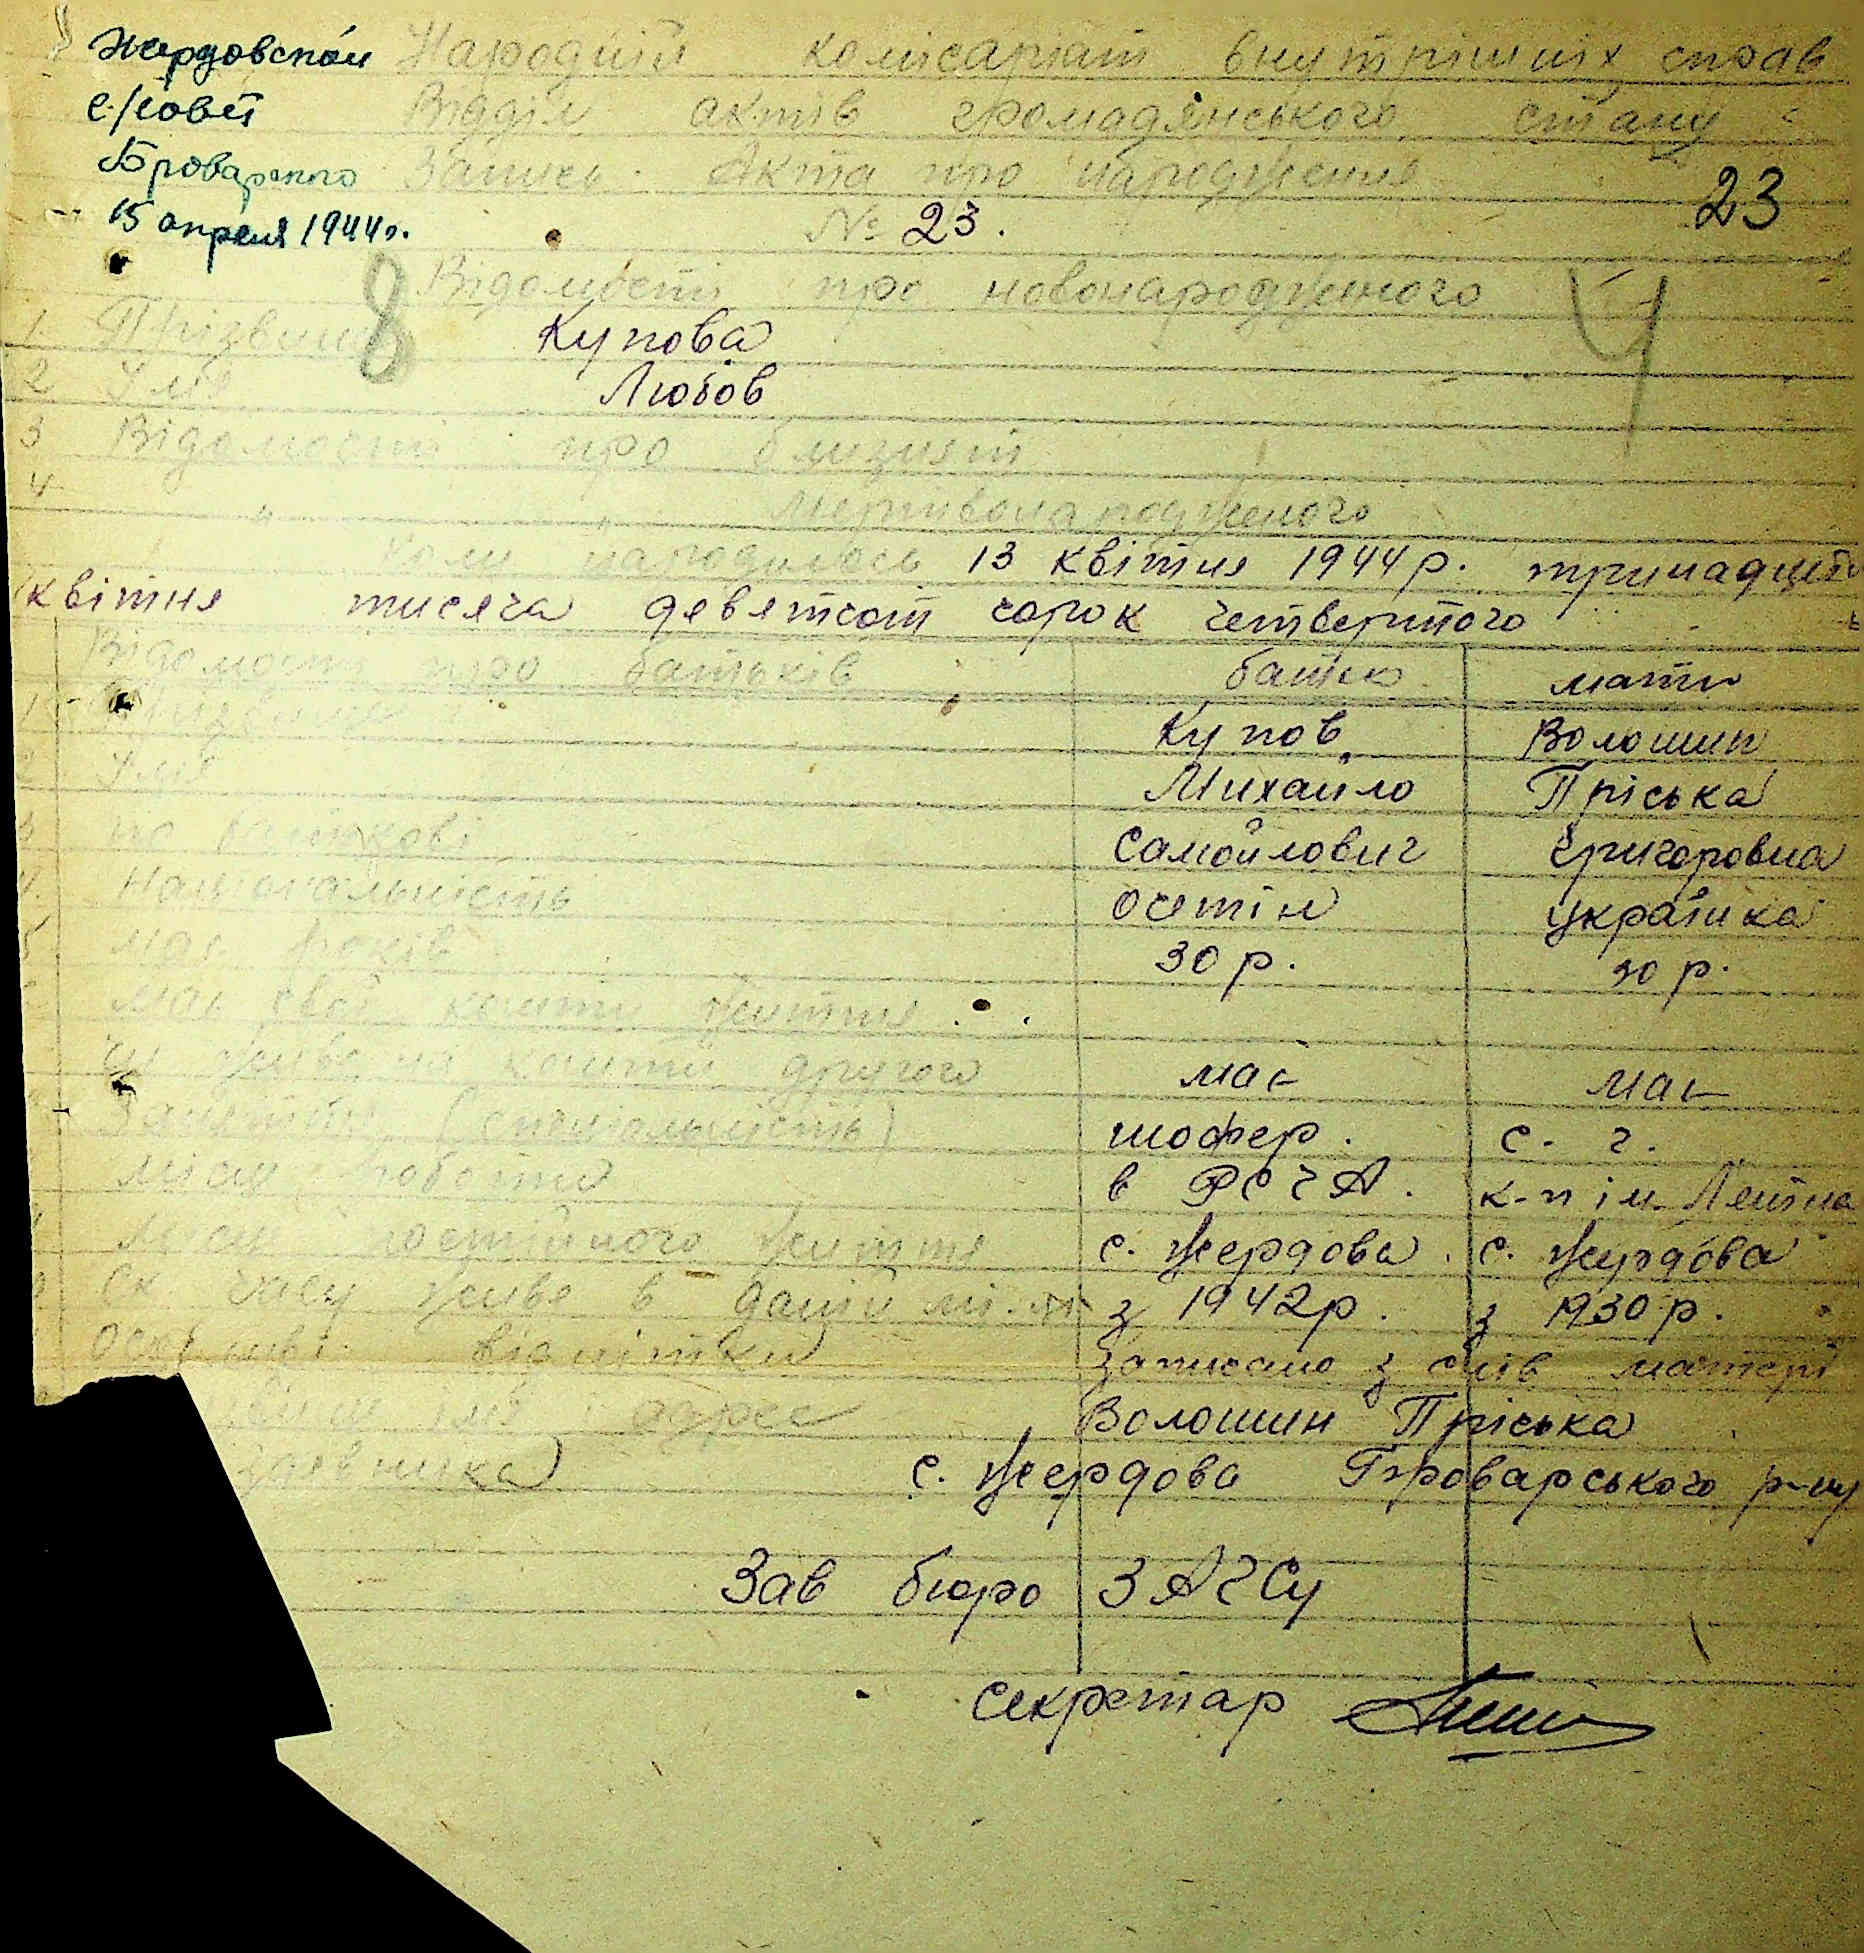 Жердовской
с/совет
Броварского
15 апреля 1944 г.
Народній комісаріат внутрішніх справ
Відділ актів громадянського стану
Запись Акта про народження
№ 23.
23
8
Ч
Відомості про новонародженого
1. Прізвище Купова
2 Імя Любов
3 Відомості про близнят
4 " " мертвонародженого
Коли народилось 13 квітня 1944 р. тринадцять
квітня тисяча девятсот сорок четвертого
Відомості про батьків батько мати
1 Прізвище Купов Волошин
2 Імя Михайло Пріська
3 по батькові Самойлович Григоровна
4. Національність осетін українка
5 має років 30 р. 30 р.
має свої кошти життя
чи живе на кошти другого має має
Заняття (спеціальність) шофер. с. г.
Місце роботи в РСЧА. к-п ім. Леніна
Місце постійного життя с. Жердова. с. Жердова
Ск часу живе в даній міс. з 1942 р. з 1930 р.
Особливі відмітки записано з слів матері
імя адрес Волошин Пріська
заявника с. Жердова Броварського р-ну
Зав бюро ЗАГСу
Секретар